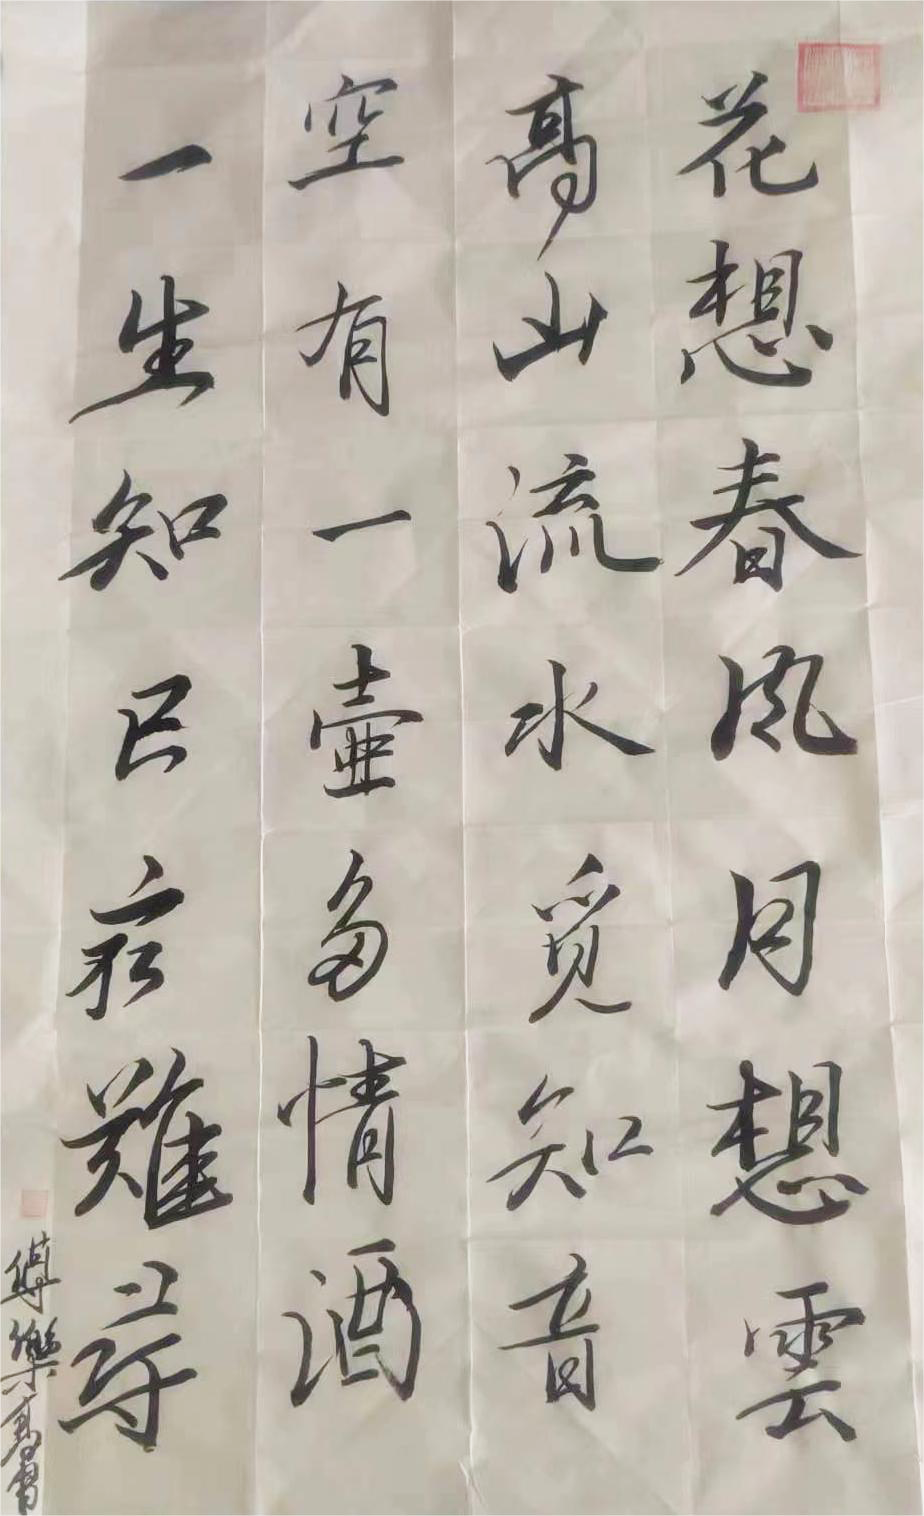 花想春风月想雲
高山流水觅知音
空有一壷多情酒
一生知己最難寻
傅樂書